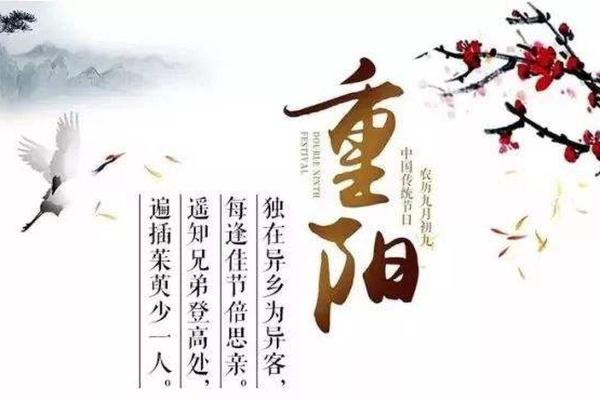 重阳
DOUBLE NINTH
FESTIVAL
农历九月初九
中国传统节日
独在异乡为异客，
每逢佳节倍思亲。
遥知兄弟登高处，
遍插茱萸少一人。